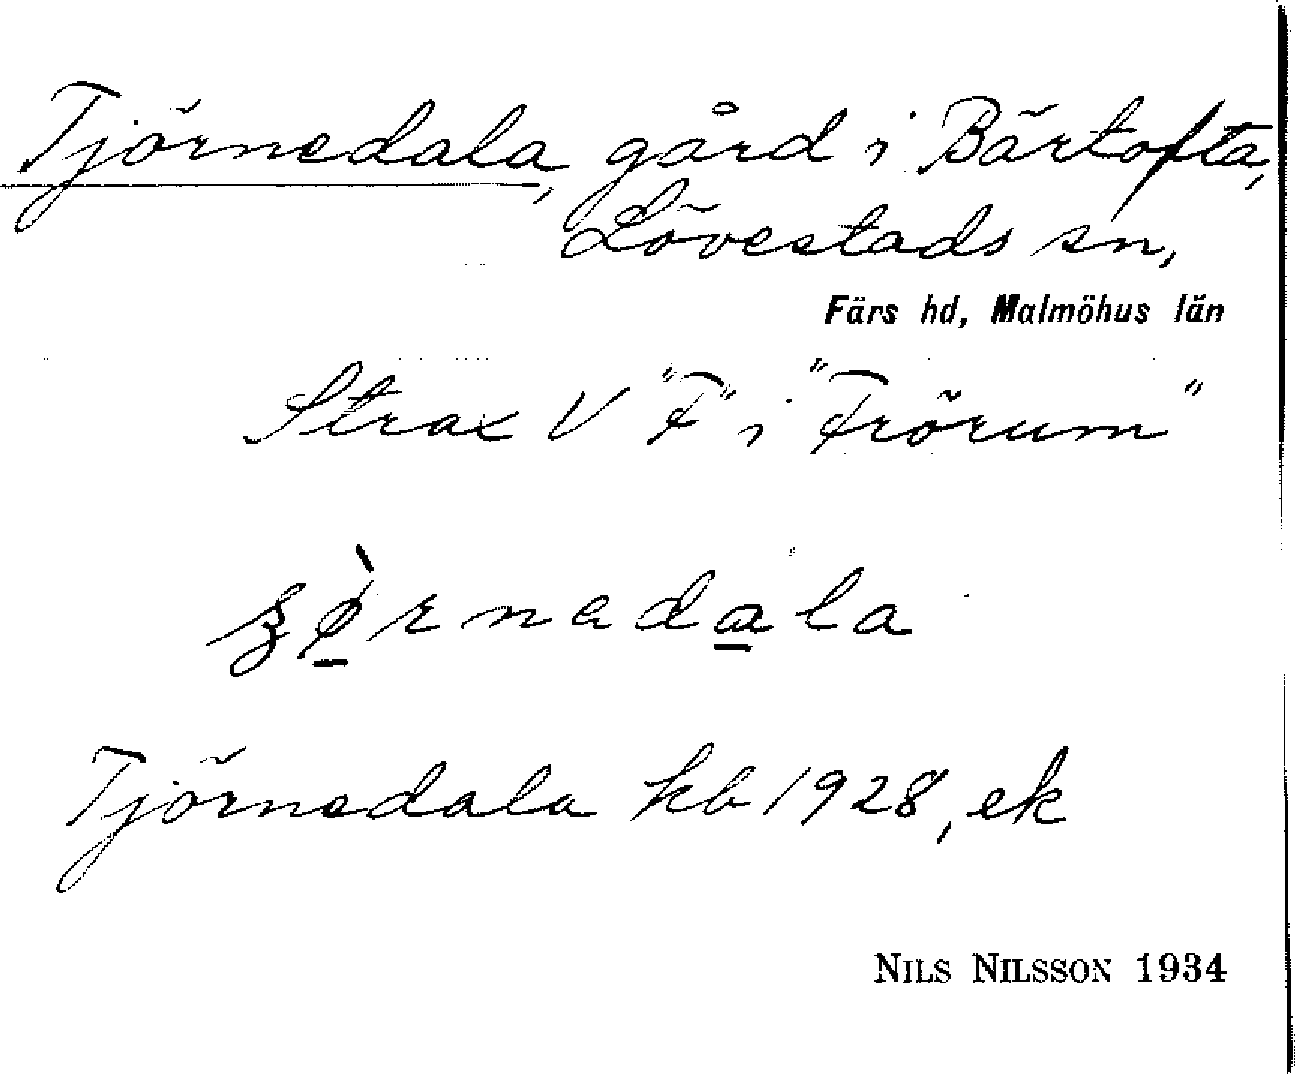 Tjörnedala, gård i Bärtofta,
Lövestads sn,
Färs hd, Malmöhus län
Strax V "F" i "Frörum"
Tjörnedala kb 1928, ek
NILS NILSSON 1934